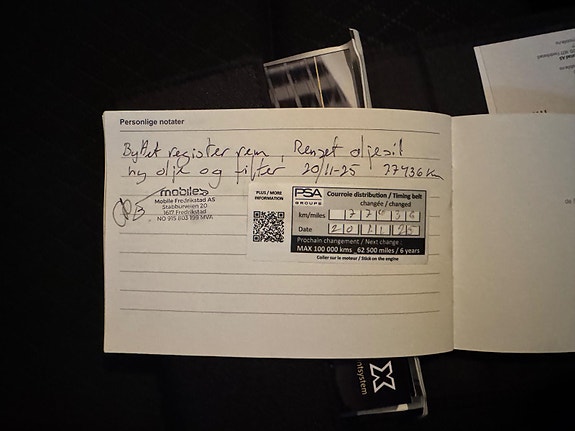 Personlige notater
Byttet register rem, Renset oljesil
ny olje og filter 20/11-25 77436 km
mobiles
Mobile Fredrikstad AS
Stabburveien 20
1617 Fredrikstad
NO 915 803 199 MVA
PLUS / MORE
INFORMATION
PSA
GROUPE
Courroie distribution / Timing belt
changée / changed
km/miles 77436
Date 20 11 25
Prochain changement / Next change :
MAX 100 000 kms 62 500 miles / 6 years
Coller sur le moteur / Stick on the engine
X
ntsystem